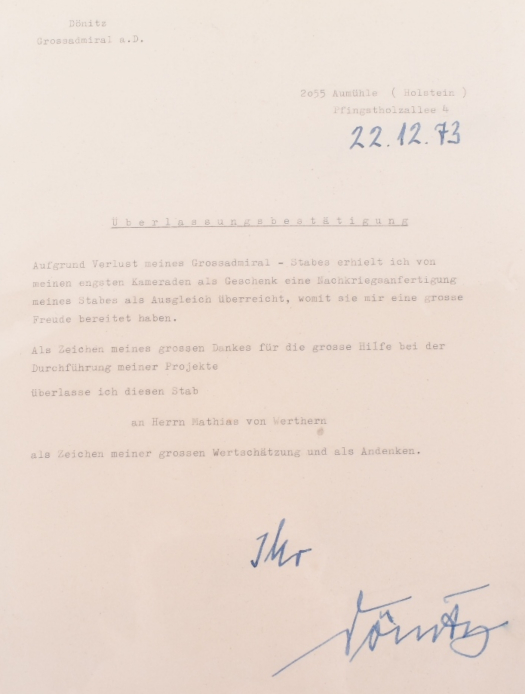 Dönitz
Grossadmiral a.D.
2055 Aumühle ( Holstein )
Pfingstholzallee 4
22.12.73
Überlassungsbestätigung
Aufgrund Verlust meines Grossadmiral - Stabes erhielt ich von
meinen engsten Kameraden als Geschenk eine Nachkriegsanfertigung
meines Stabes als Ausgleich überreicht, womit sie mir eine grosse
Freude bereitet haben.
Als Zeichen meines grossen Dankes für die grosse Hilfe bei der
Durchführung meiner Projekte
überlasse ich diesen Stab
an Herrn Mathias von Werthern
als Zeichen meiner grossen Wertschätzung und als Andenken.
Ihr
Dönitz